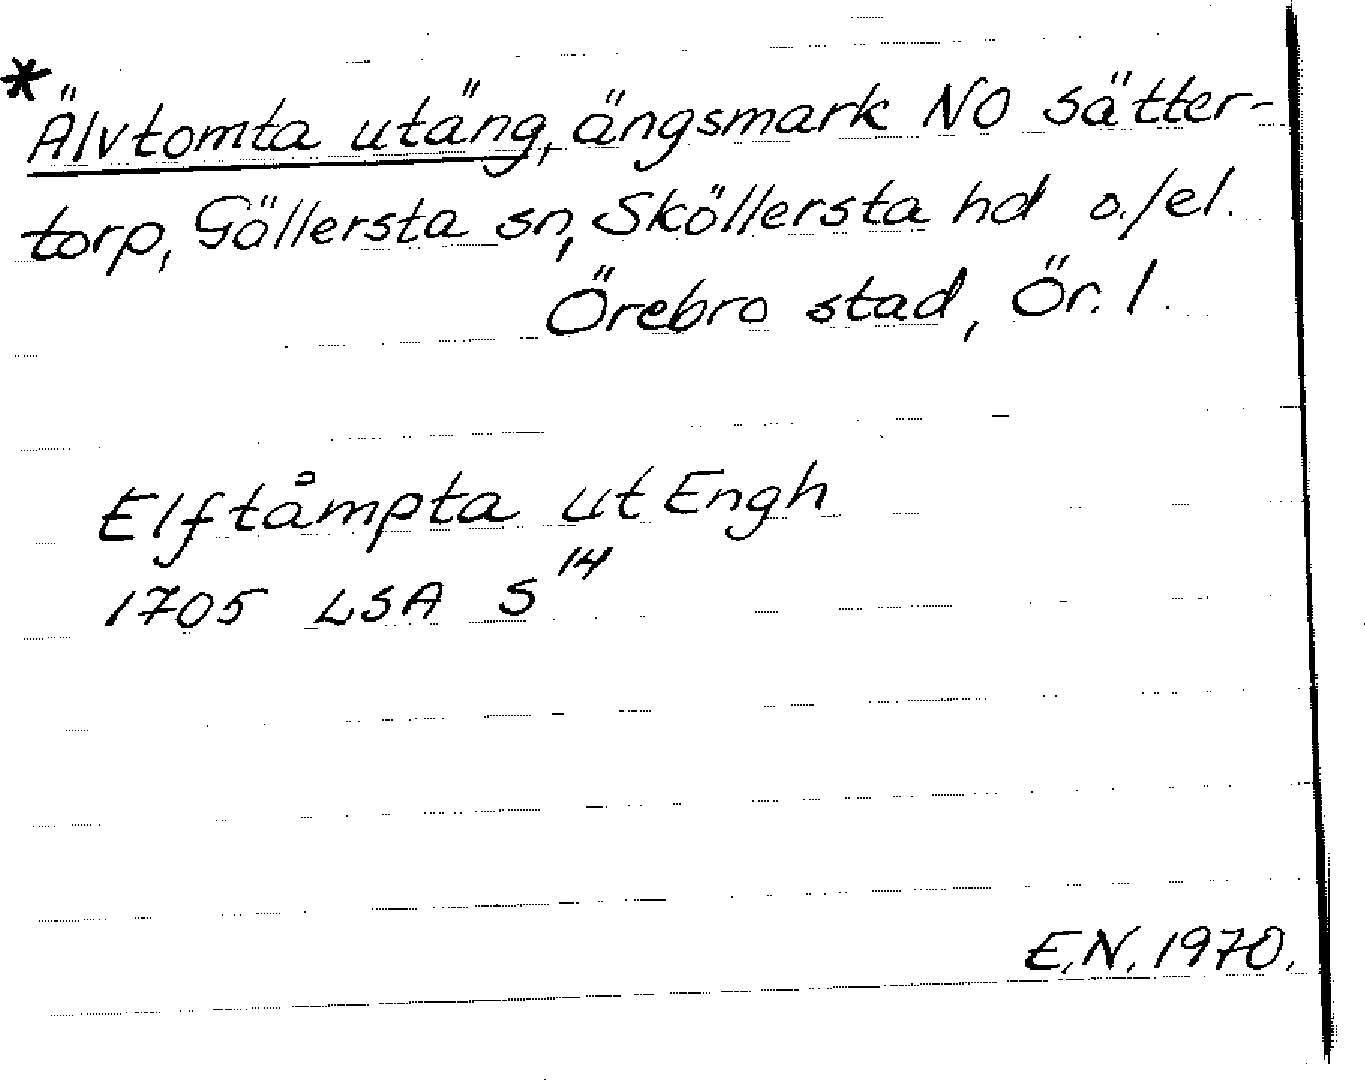 *Älvtomta utäng, ängsmark NO Sätter-
torp, Gällersta sn, Sköllersta hd o./el.
Örebro stad, Ör. l.
Elftåmpta ut Engh
1705 LSA S¹⁴
E.N. 1970.